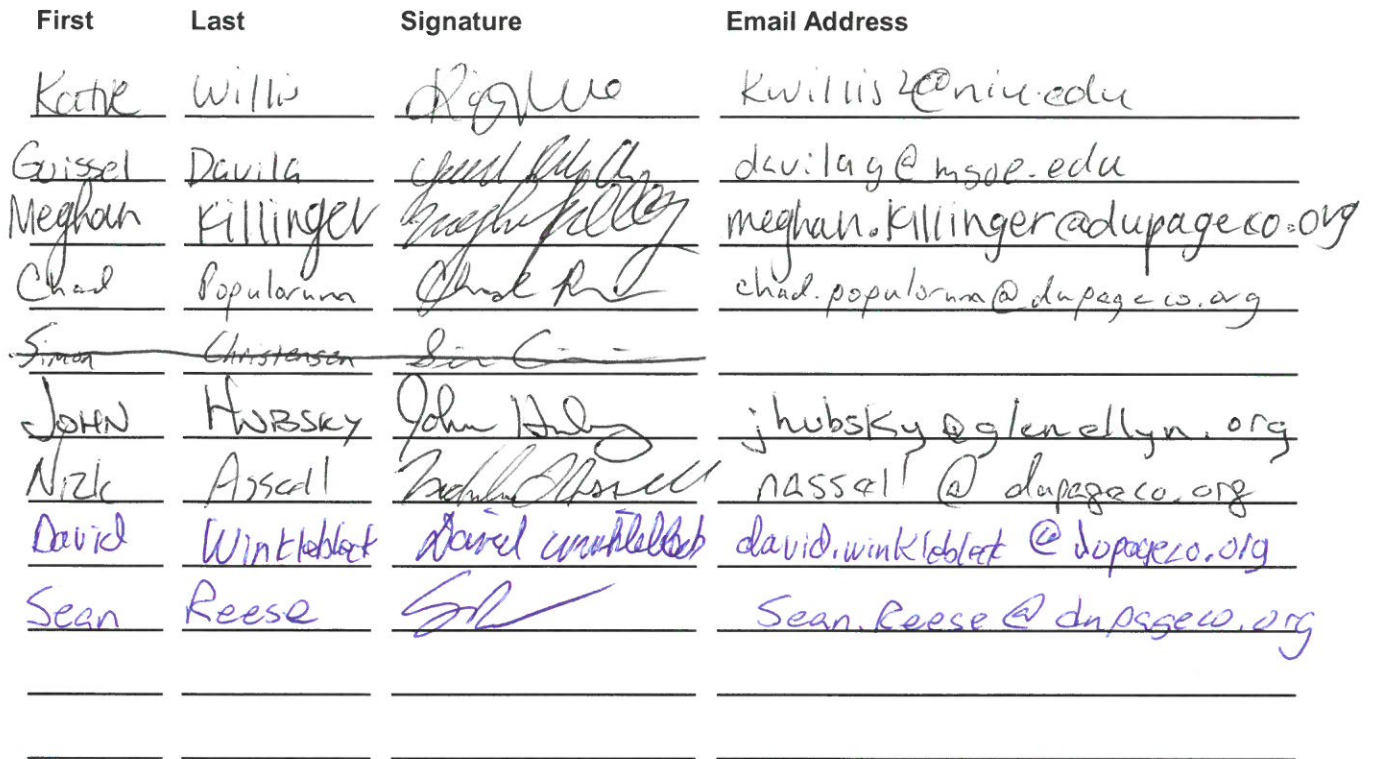 First Last Signature Email Address
Katie Willis kwillis2@niu.edu
Guissel Davila davilag@msoe.edu
Meghan Killinger meghan.killinger@dupageco.org
Chad Popularum chad.popularum@dupageco.org
Simon Christensen
JOHN HUBSKY John jhubsky@glenellyn.org
Nick Assell nassell@dupageco.org
David Winklebleck David david.winkleblect@dupageco.org
Sean Reese Sean.Reese@dupageco.org